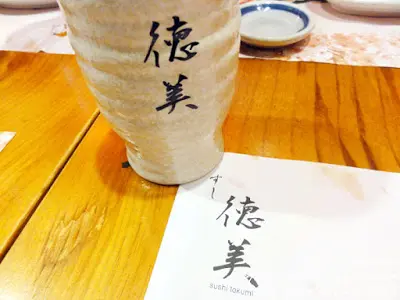 徳
美
すし
徳
美
sushi tokumi